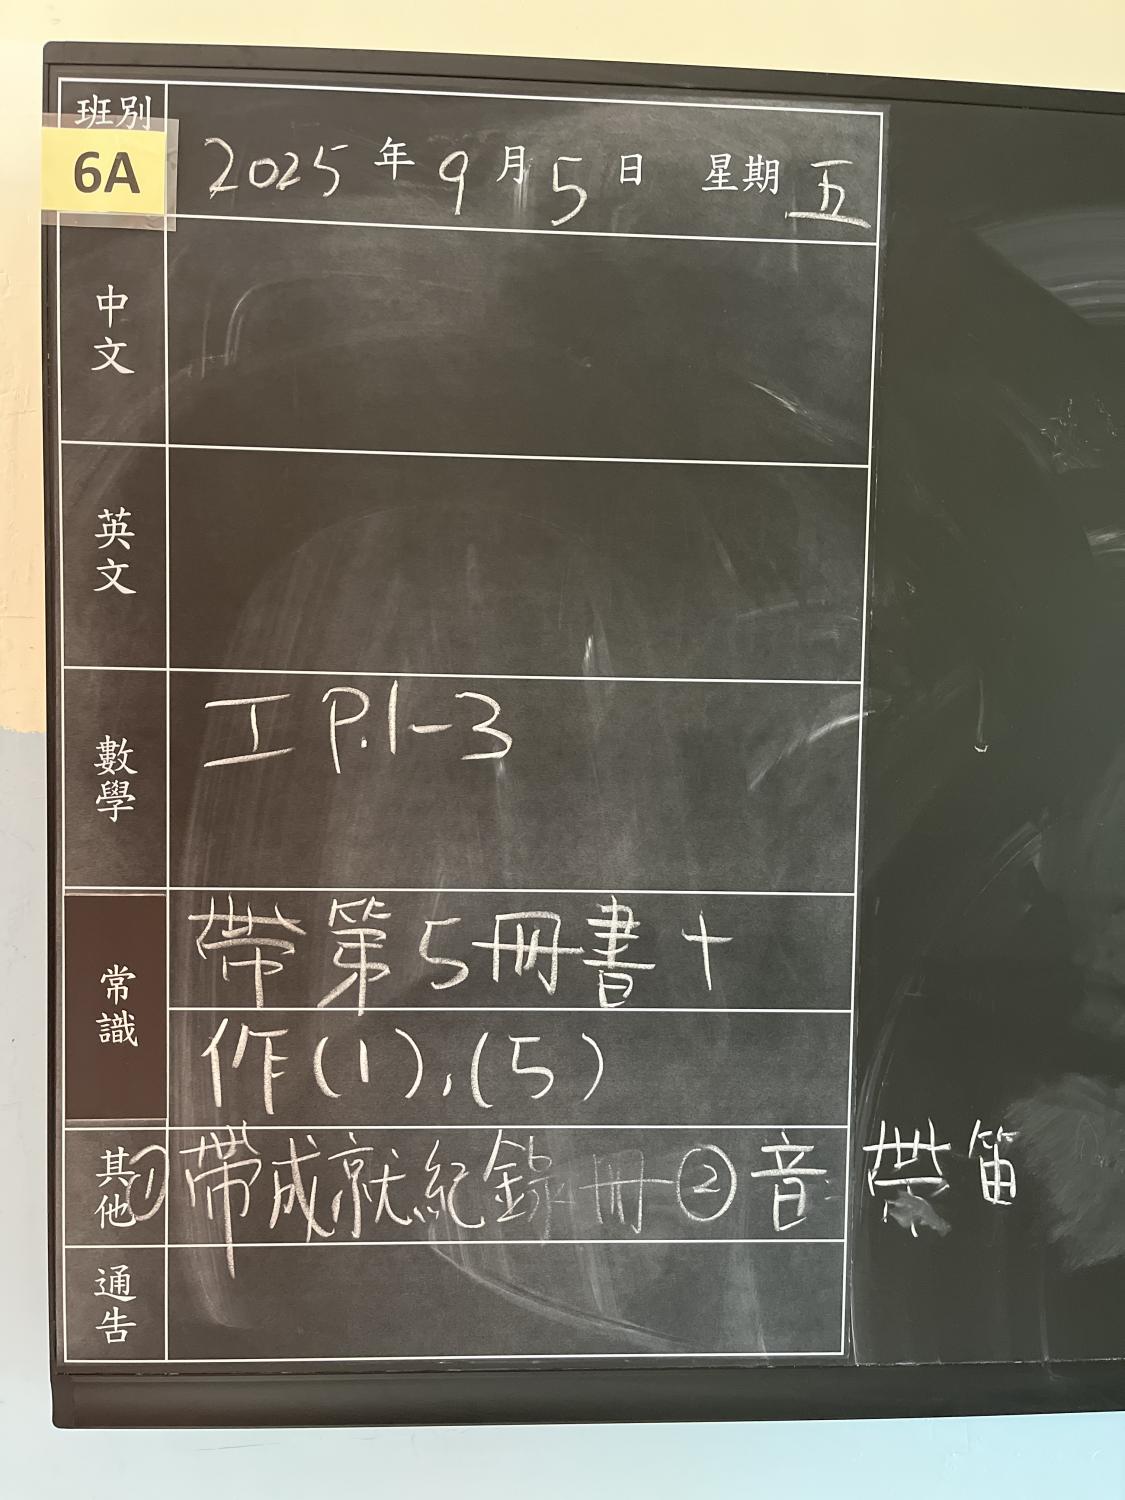 班別
6A
2025年9月5日 星期五
中文
英文
數學
工 P.1-3
常識
帶第5冊書+
作(1),(5)
其他
①帶成就紀錄冊②音:帶笛
通告